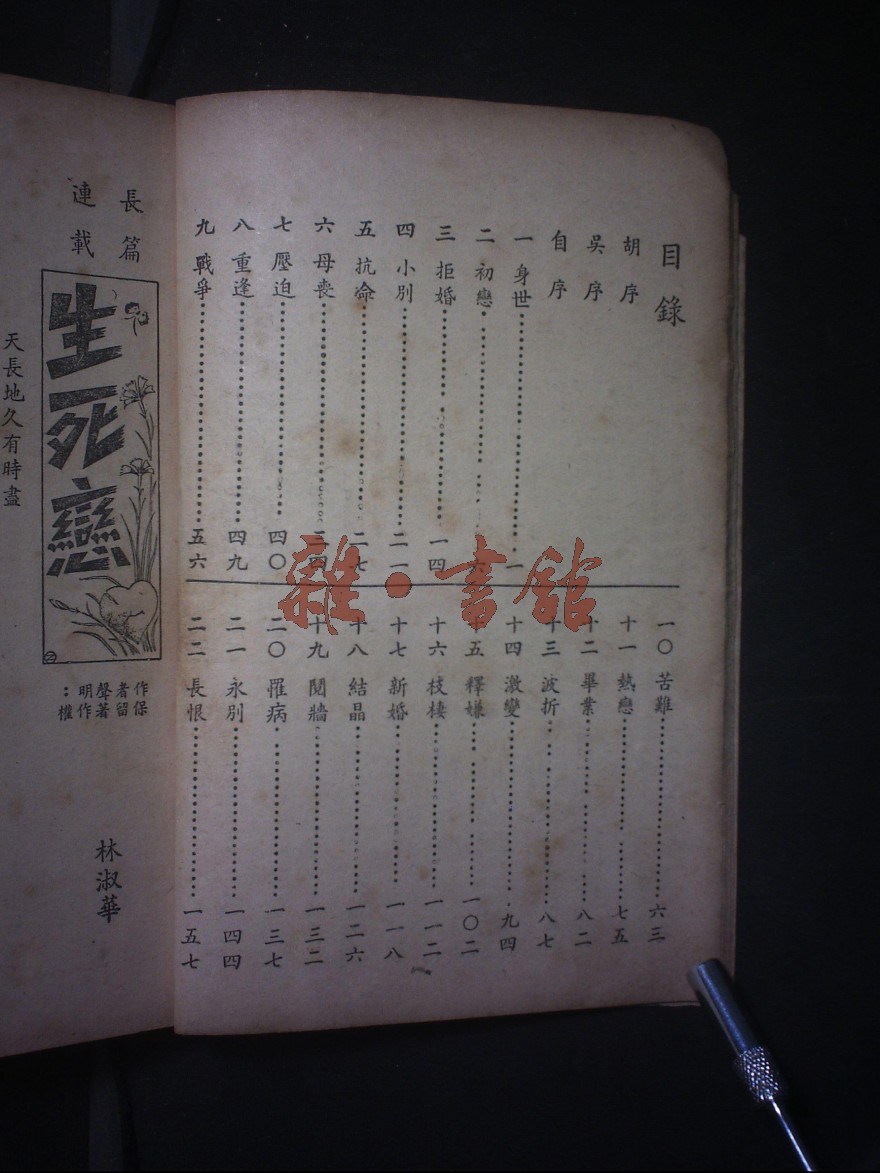 目錄
胡序
吳序
自序
一 身世 一
二 初戀 六
三 拒婚 一四
四 小別 二一
五 抗命 二七
六 母喪 三四
七 壓迫 四〇
八 重逢 四九
九 戰爭 五六
一〇 苦難 六三
十一 熱戀 七五
十二 畢業 八二
十三 波折 八七
十四 激變 九四
十五 釋嫌 一〇二
十六 枝棲 一一二
十七 新婚 一一八
十八 結晶 一二六
十九 鬩牆 一三二
二〇 罹病 一三七
二一 永別 一四四
二二 長恨 一五七
長篇
連載
生死戀
作者聲明：
保留著作權
林淑華
天長地久有時盡
雜·書館